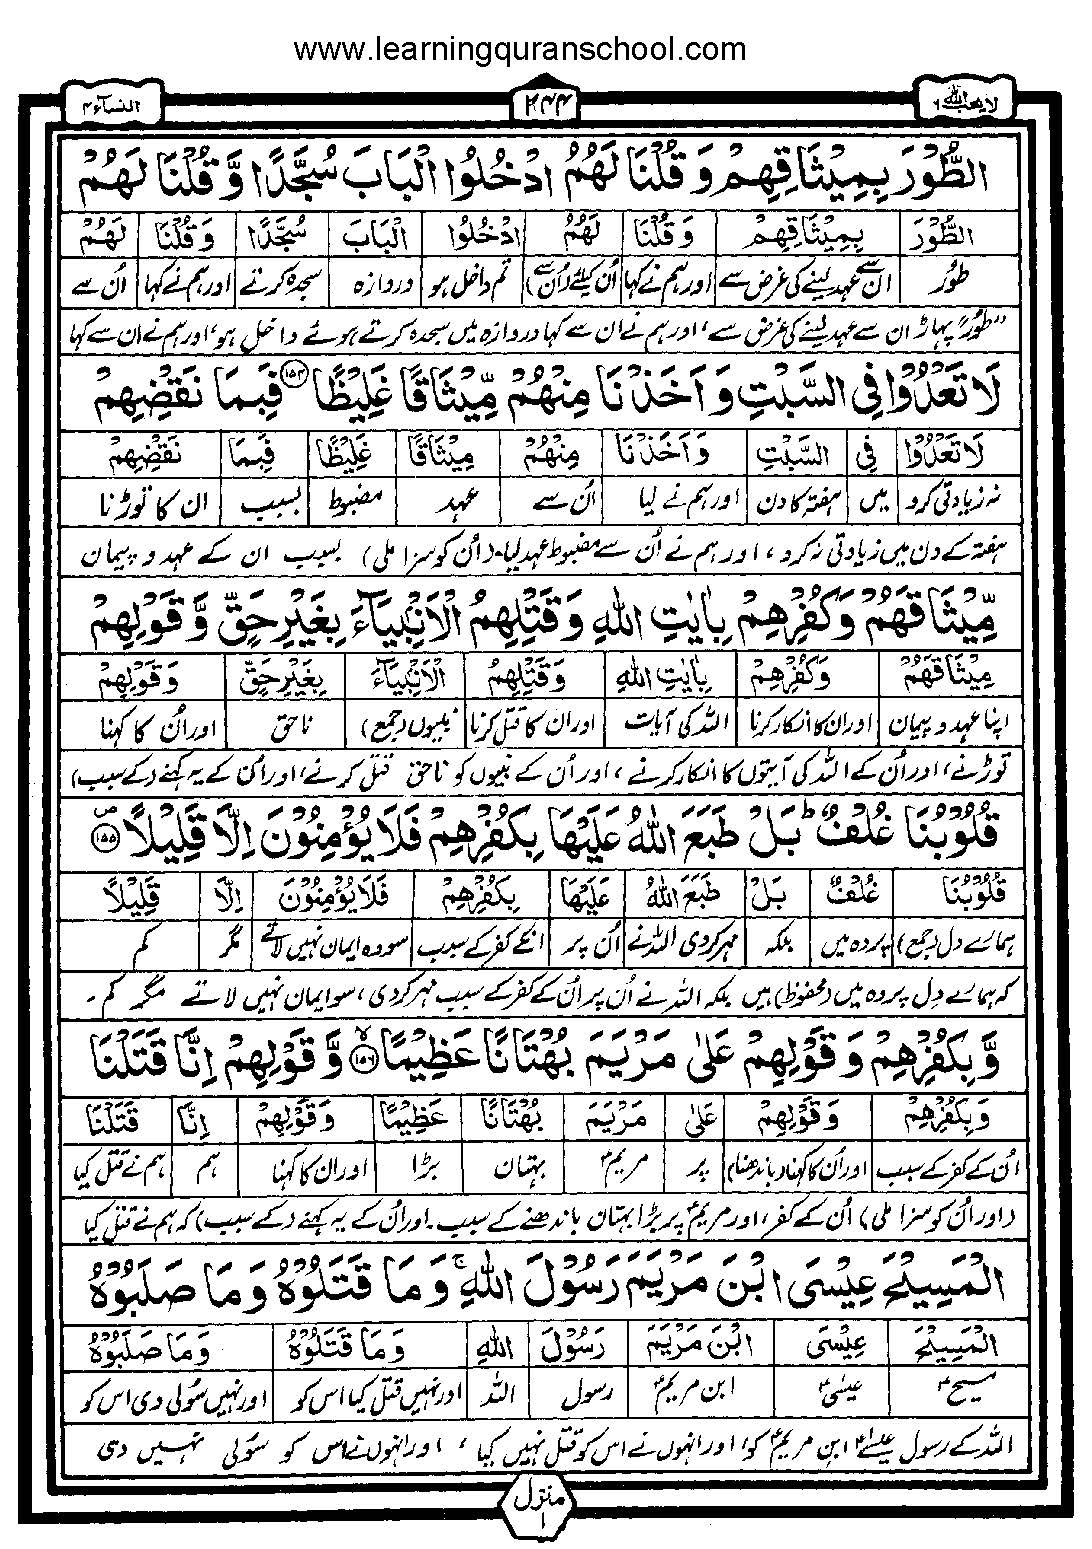 www.learningquranschool.com
لا یحب اللہ ۶
۲۴۴
النسآء ۴
الطُّوْرَ بِمِيْثَاقِهِمْ وَ قُلْنَا لَهُمُ ادْخُلُوا الْبَابَ سُجَّدًا وَّ قُلْنَا لَهُمْ
الطُّوْرَ بِمِيْثَاقِهِمْ وَ قُلْنَا لَهُمُ ادْخُلُوا الْبَابَ سُجَّدًا وَ قُلْنَا لَهُمْ
طُور ان سے عہد لینے کی غرض سے اور ہم نے کہا اُن کیلئے (اُن سے) تم داخل ہو دروازہ سجدہ کرتے اور ہم نے کہا اُن سے
"طُور" پہاڑ ان سے عہد لینے کی غرض سے، اور ہم نے ان سے کہا دروازہ میں سجدہ کرتے ہوئے داخل ہو، اور ہم نے ان سے کہا
لَا تَعْدُوْا فِى السَّبْتِ وَ اَخَذْنَا مِنْهُمْ مِّيْثَاقًا غَلِيْظًا ۱۵۴ فَبِمَا نَقْضِهِمْ
لَا تَعْدُوْا فِى السَّبْتِ وَ اَخَذْنَا مِنْهُمْ مِيْثَاقًا غَلِيْظًا فَبِمَا نَقْضِهِمْ
نہ زیادتی کرو میں ہفتہ کا دن اور ہم نے لیا اُن سے عہد مضبوط بسبب ان کا توڑنا
ہفتہ کے دن میں زیادتی نہ کرو، اور ہم نے اُن سے مضبوط عہد لیا۔ (اُن کو سزا ملی) بسبب ان کے عہد و پیمان
مِّيْثَاقَهُمْ وَ كُفْرِهِمْ بِاٰيٰتِ اللّٰهِ وَ قَتْلِهِمُ الْاَنْۢبِيَآءَ بِغَيْرِ حَقٍّ وَّ قَوْلِهِمْ
مِيْثَاقَهُمْ وَ كُفْرِهِمْ بِاٰيٰتِ اللّٰهِ وَ قَتْلِهِمُ الْاَنْۢبِيَآءَ بِغَيْرِ حَقٍّ وَ قَوْلِهِمْ
اپنا عہد و پیمان اور ان کا انکار کرنا اللہ کی آیات اور ان کا قتل کرنا نبیوں (جمع) ناحق اور اُن کا کہنا
توڑنے، اور اُن کے اللہ کی آیتوں کا انکار کرنے، اور اُن کے نبیوں کو ناحق قتل کرنے، اور اُن کے یہ کہنے (کے سبب)
قُلُوْبُنَا غُلْفٌ ؕ بَلْ طَبَعَ اللّٰهُ عَلَيْهَا بِكُفْرِهِمْ فَلَا يُؤْمِنُوْنَ اِلَّا قَلِيْلًا ۱۵۵ ص
قُلُوْبُنَا غُلْفٌ بَلْ طَبَعَ اللّٰهُ عَلَيْهَا بِكُفْرِهِمْ فَلَا يُؤْمِنُوْنَ اِلَّا قَلِيْلًا
ہمارے دل (جمع) پردہ میں بلکہ مہر کردی اللہ نے اُن پر انکے کفر کے سبب سو وہ ایمان نہیں لاتے مگر کم
کہ ہمارے دِل پردہ میں (محفوظ) ہیں بلکہ اللہ نے اُن پر اُن کے کفر کے سبب مہر کردی، سو ایمان نہیں لاتے مگر کم۔
وَّ بِكُفْرِهِمْ وَ قَوْلِهِمْ عَلٰى مَرْيَمَ بُهْتَانًا عَظِيْمًا ۱۵۶ لا وَّ قَوْلِهِمْ اِنَّا قَتَلْنَا
وَ بِكُفْرِهِمْ وَ قَوْلِهِمْ عَلٰى مَرْيَمَ بُهْتَانًا عَظِيْمًا وَ قَوْلِهِمْ اِنَّا قَتَلْنَا
اُن کے کفر کے سبب اور اُن کا کہنا (باندھنا) پر مریمؑ بہتان بڑا اور ان کا کہنا ہم ہم نے قتل کیا
(اور اُن کو سزا ملی) اُن کے کفر، اور مریمؑ پر بڑا بہتان باندھنے کے سبب۔ اور اُن کے یہ کہنے (کے سبب) کہ ہم نے قتل کیا
الْمَسِيْحَ عِيْسَى ابْنَ مَرْيَمَ رَسُوْلَ اللّٰهِ ۚ وَ مَا قَتَلُوْهُ وَ مَا صَلَبُوْهُ
الْمَسِيْحَ عِيْسَى ابْنَ مَرْيَمَ رَسُوْلَ اللّٰهِ وَ مَا قَتَلُوْهُ وَ مَا صَلَبُوْهُ
مسیحؑ عیسٰیؑ ابن مریمؑ رسول اللہ اور نہیں قتل کیا اس کو اور نہیں سُولی دی اس کو
اللہ کے رسول عیسٰےؑ ابن مریمؑ کو، اور انہوں نے اس کو قتل نہیں کیا، اور انہوں نے اس کو سُولی نہیں دی
منزل
۱